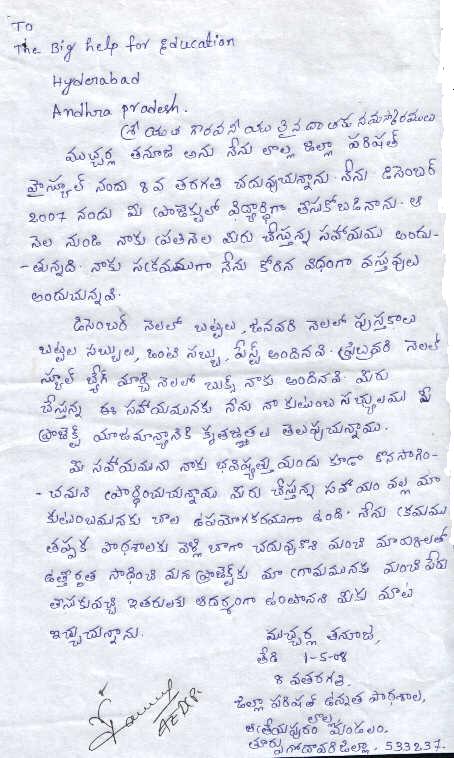 To
The Big help for Education
Hyderabad
Andhra pradesh.
శ్రీ యుత గౌరవనీయులైన దాతకు నమస్కారములు
ముచ్చర్ల తనూజ అను నేను లొల్ల జిల్లా పరిషత్
హైస్కూల్ నందు 8 వ తరగతి చదువుచున్నాను. నేను డిసెంబర్
2007 నందు మీ ప్రాజెక్టులో విద్యార్థిగా తీసుకోబడినాను. ఆ
నెల నుండి నాకు ప్రతినెల మీరు చేస్తున్న సహాయము అందు-
-తున్నది. నాకు సక్రమముగా నేను కోరిన విధంగా వస్తువులు
అందుచున్నవి.
డిసెంబర్ నెలలో బట్టలు, జనవరి నెలలో పుస్తకాలు
బట్టల సబ్బులు, ఒంటి సబ్బు, పేస్ట్ అందినవి. ఫిబ్రవరి నెలలో
స్కూల్ బ్యాగ్ మార్చి నెలలో బుక్స్ నాకు అందినవి. మీరు
చేస్తున్న ఈ సహాయమునకు నేను నా కుటుంబ సభ్యులము మీ
ప్రాజెక్ట్ యాజమాన్యానికి కృతజ్ఞతలు తెలుపుచున్నాము.
మీ సహాయమును నాకు భవిష్యత్తు యందు కూడా కొనసాగిం-
-చమని ప్రార్థించుచున్నాము. మీరు చేస్తున్న సహాయం వల్ల మా
కుటుంబమునకు చాల ఉపయోగకరముగా ఉంది. నేను క్రమము
తప్పక పాఠశాలకు వెళ్లి బాగా చదువుకొని మంచి మార్కులతో
ఉత్తీర్ణత సాధించి మన ప్రాజెక్ట్‌కు మా గ్రామమునకు మంచి పేరు
తీసుకువచ్చి ఇతరులకు ఆదర్శంగా ఉంటానని మీకు మాట
ఇచ్చుచున్నాను.
ముచ్చర్ల తనూజ,
తేది 1-5-08
8 వతరగతి,
జిల్లా పరిషత్ ఉన్నత పాఠశాల,
లొల్ల
ఆత్రేయపురం మండలం.
తూర్పు గోదావరి జిల్లా. 533237.